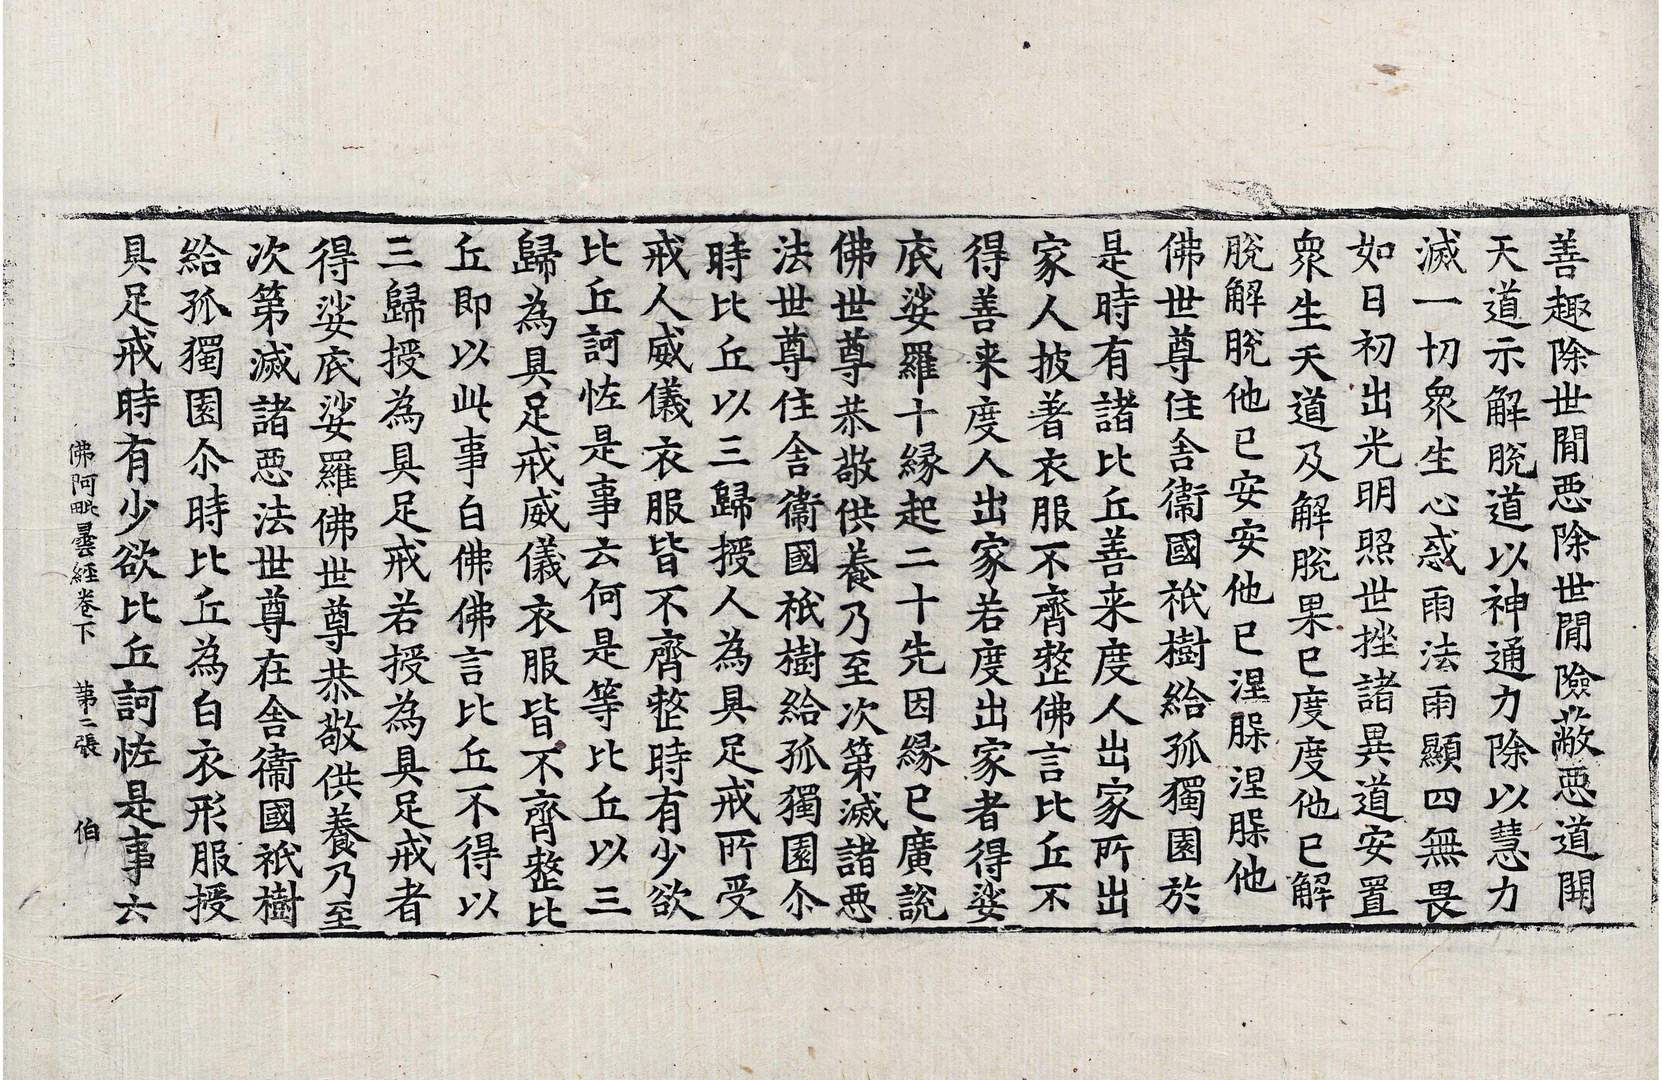 善趣除世間惡除世間險蔽惡道開
天道示解脫道以神通力除以慧力
滅一切衆生心惑雨法雨顯四無畏
如日初出光明照世挫諸異道安置
衆生天道及解脫果已度度他已解
脫解脫他已安安他已涅槃涅槃他
佛世尊住舍衞國祇樹給孤獨園於
是時有諸比丘善来度人出家所出
家人披著衣服不齊整佛言比丘不
得善来度人出家若度出家者得娑
底娑羅十緣起二十先因緣已廣說
佛世尊恭敬供養乃至次第滅諸惡
法世尊住舍衞國祇樹給孤獨園尒
時比丘以三歸授人為具足戒所受
戒人威儀衣服皆不齊整時有少欲
比丘訶恠是事云何是等比丘以三
歸為具足戒威儀衣服皆不齊整比
丘即以此事白佛佛言比丘不得以
三歸授為具足戒若授為具足戒者
得娑底娑羅佛世尊恭敬供養乃至
次第滅諸惡法世尊在舍衞國祇樹
給孤獨園尒時比丘為白衣形服授
具足戒時有少欲比丘訶恠是事云
佛阿毗曇經卷下 第二張 伯